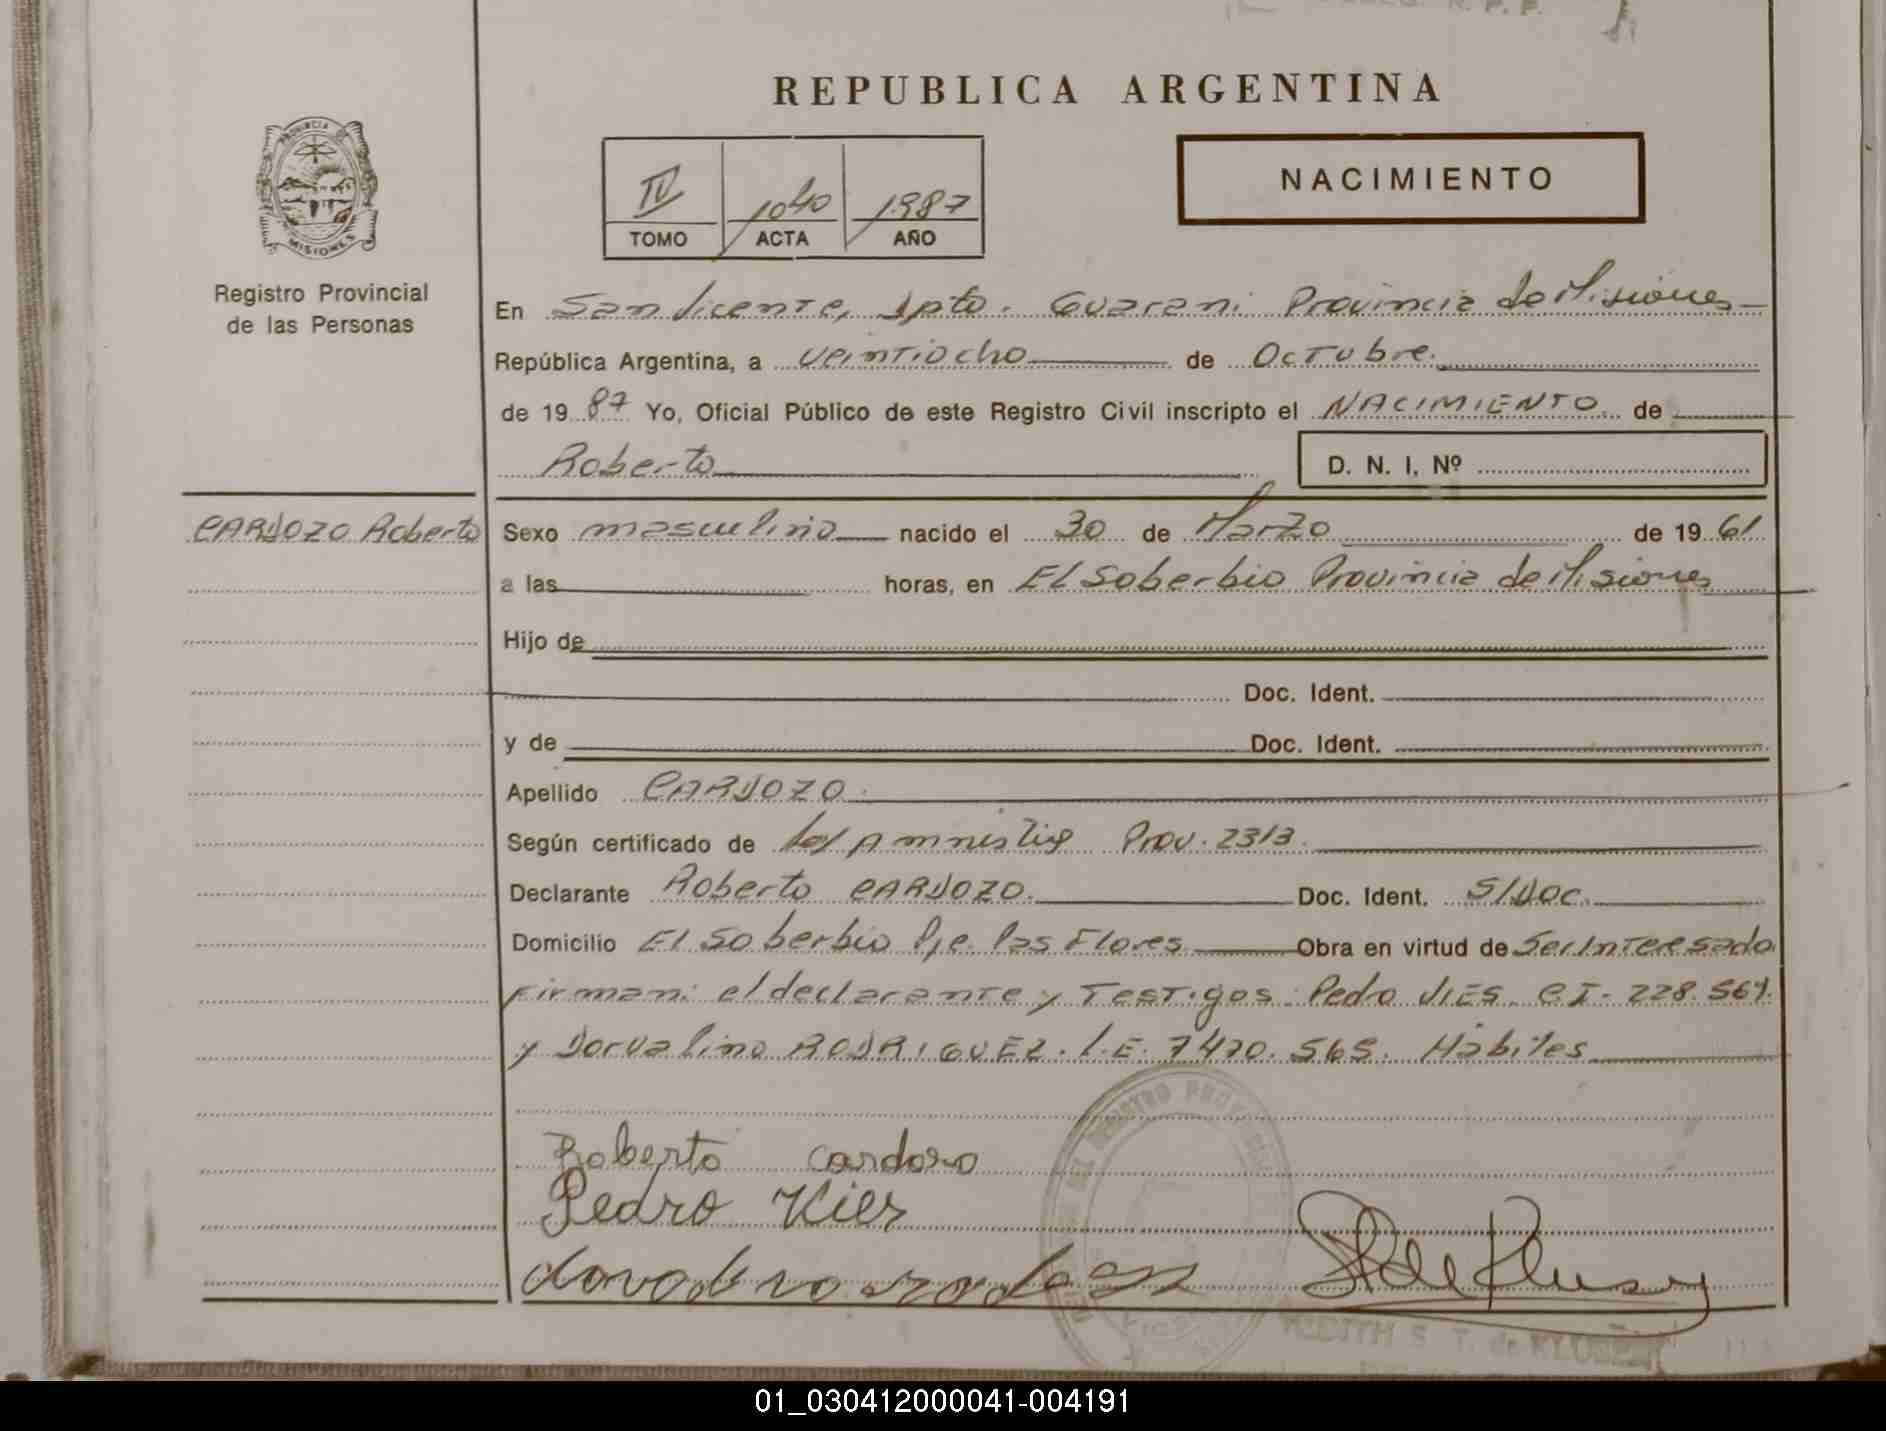 REPUBLICA ARGENTINA
PROVINCIA DE
MISIONES
Registro Provincial
de las Personas
IV 1040 1987
TOMO ACTA AÑO
NACIMIENTO
En San Vicente, Dpto. Guarani Provincia de Misiones
República Argentina, a veintiocho de Octubre.
de 1987 Yo, Oficial Público de este Registro Civil inscripto el NACIMIENTO de
Roberto D. N. I. Nº
CARDOZO Roberto
Sexo masculino nacido el 30 de Marzo de 1961
a las horas, en El Soberbio Provincia de Misiones
Hijo de
Doc. Ident.
y de Doc. Ident.
Apellido CARDOZO.
Según certificado de Ley Amnistia Prov. 2313.
Declarante Roberto CARDOZO. Doc. Ident. S/DOC.
Domicilio El Soberbio Pje. Las Flores Obra en virtud de Ser Interesado
Firman: el declarante y Testigos: Pedro C.I. 228.
y Dorvalino RODRIGUEZ. L.E. 7470.565. Hábiles
Roberto Cardozo
Pedro Kies